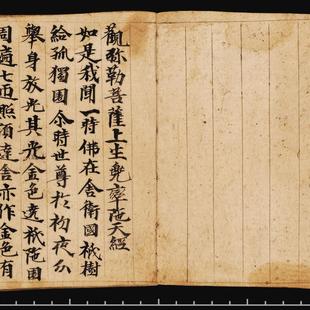 觀弥勒菩薩上生兜率陁天經
如是我聞一時佛在舍衛國祇樹
給孤獨園尒時世尊於初夜分
舉身放光其光金色遶祇陁園
周遍七迊照須達舍亦作金色有